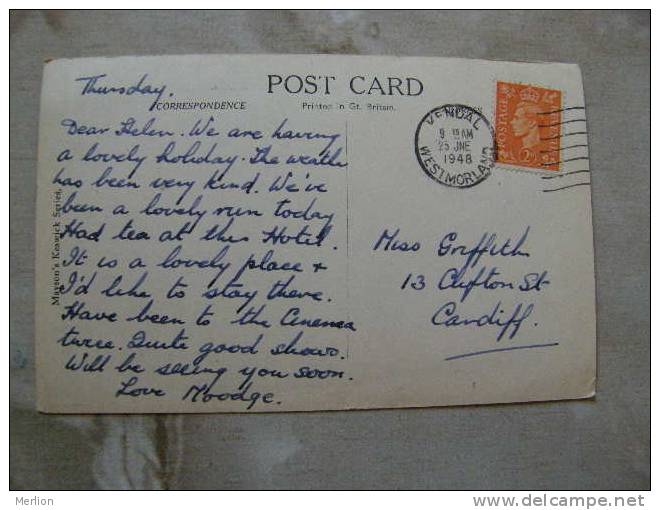 Thursday.
POST CARD
CORRESPONDENCE
Printed in Gt. Britain.
Dear Helen. We are having
a lovely holiday. The weath
has been very kind. We've
been a lovely run today
Had tea at this Hotel.
It is a lovely place +
I'd like to stay there.
Have been to the Cinema
twice. Quite good shows.
Will be seeing you soon.
Love Moodge.
Mayson's Keswick Series.
KENDAL
9 15 AM
25 JNE
1948
WESTMORLAND
POSTAGE
Miss Griffith
13 Clifton St
Cardiff.
Merlion
www.delcampe.net